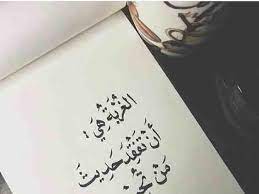 الغُرْبَةُ هِيَ :
أَنْ تَفْتَقِدَ حَدِيثَ
مَنْ تُحِبُّ